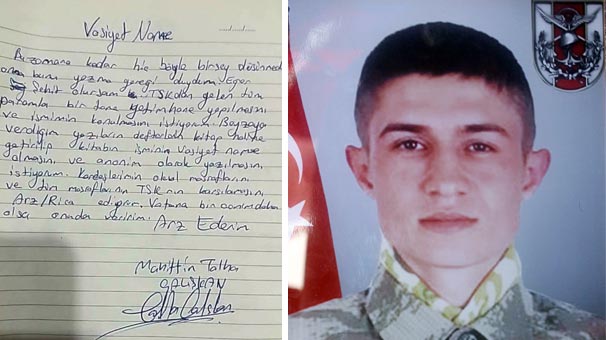 Vasiyet Name
Bu zamana kadar hiç böyle birşey düşünmedim
ama bunu yazma gereği duydum Eğer
Şehit olursam TSK'dan gelen tüm
paramla bir tane yetimhane yapılmasını
ve ismimin konulmasını istiyorum. Beyzaya
verdiğim yazıların defterdeki kitap haline
getirilip kitabın isminin Vasiyet name
olmasını ve anonim olarak yazılmasını
istiyorum. Kardeşlerimin okul masraflarını
ve tüm masraflarını TSK'nın karşılamasını
Arz/Rica ediyorum. Vatana bin canım daha
olsa onuda veririm.
Arz Ederim
Talha
ÇALIŞKAN